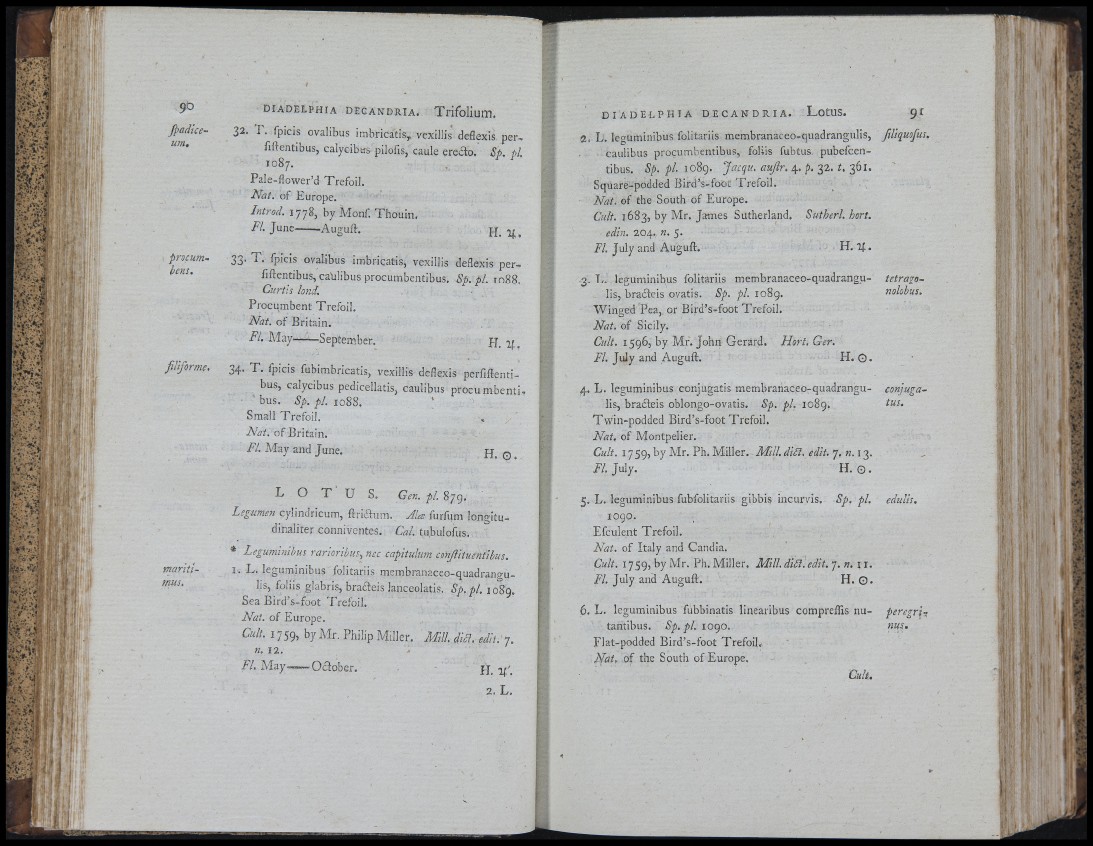 90 DIADELPHIA DECANDRIA. Trifolium.
ſpadice- 32. T. ſpicis ovalibus imbricatis, vexillis deflexis per-
um. ſiſtentibus, calycibus piloſis, caule erecto. Sp. pl.
1087.
Pale-flower'd Trefoil.
Nat. of Europe.
Introd. 1778, by Monſ. Thouin.
Fl. June——Auguſt. H. ♃.
procum- 33. T. ſpicis ovalibus imbricatis, vexillis deflexis per-
bens. ſiſtentibus, caulibus procumbentibus. Sp. pl. 1088.
Curtis lond.
Procumbent Trefoil.
Nat. of Britain.
Fl. May——September. H. ♃.
filiforme. 34. T. ſpicis ſubimbricatis, vexillis deflexis perſiſtenti-
bus, calycibus pedicellatis, caulibus procumbenti-
bus. Sp. pl. 1088.
Small Trefoil.
Nat. of Britain.
Fl. May and June. H. ☉.
LOTUS. Gen. pl. 879.
Legumen cylindricum, ſtrictum. Alæ ſurſum longitu-
dinaliter conniventes. Cal. tubuloſus.
* Leguminibus rarioribus, nec capitulum conſtituentibus.
mariti- 1. L. leguminibus ſolitariis membranaceo-quadrangu-
mus. lis, foliis glabris, bracteis lanceolatis. Sp. pl. 1089.
Sea Bird's-foot Trefoil.
Nat. of Europe.
Cult. 1759, by Mr. Philip Miller. Mill. dict. edit. 7.
n. 12.
Fl. May——October. H. ♃.
2. L.
DIADELPHIA DECANDRIA. Lotus. 91
2. L. leguminibus ſolitariis membranaceo-quadrangulis, ſiliquoſus.
caulibus procumbentibus, foliis ſubtus pubeſcen-
tibus. Sp. pl. 1089. Jacqu. auſtr. 4. p. 32. t. 361.
Square-podded Bird's-foot Trefoil.
Nat. of the South of Europe.
Cult. 1683, by Mr. James Sutherland. Sutherl. hort.
edin. 204. n. 5.
Fl. July and Auguſt. H. ♃.
3. L. leguminibus ſolitariis membranaceo-quadrangu- tetrago-
lis, bracteis ovatis. Sp. pl. 1089. nolobus.
Winged Pea, or Bird's-foot Trefoil.
Nat. of Sicily.
Cult. 1596, by Mr. John Gerard. Hort. Ger.
Fl. July and Auguſt. H. ☉.
4. L. leguminibus conjugatis membranaceo-quadrangu- conjuga-
lis, bracteis oblongo-ovatis. Sp. pl. 1089. tus.
Twin-podded Bird's-foot Trefoil.
Nat. of Montpelier.
Cult. 1759, by Mr. Ph. Miller. Mill. dict. edit. 7. n. 13.
Fl. July. H. ☉.
5. L. leguminibus ſubſolitariis gibbis incurvis. Sp. pl. edulis.
1090.
Eſculent Trefoil.
Nat. of Italy and Candia.
Cult. 1759, by Mr. Ph. Miller. Mill. dict. edit. 7. n. 11.
Fl. July and Auguſt. H. ☉.
6. L. leguminibus ſubbinatis linearibus compreſſis nu- peregri-
tantibus. Sp. pl. 1090. nus.
Flat-podded Bird's-foot Trefoil.
Nat. of the South of Europe.
Cult.